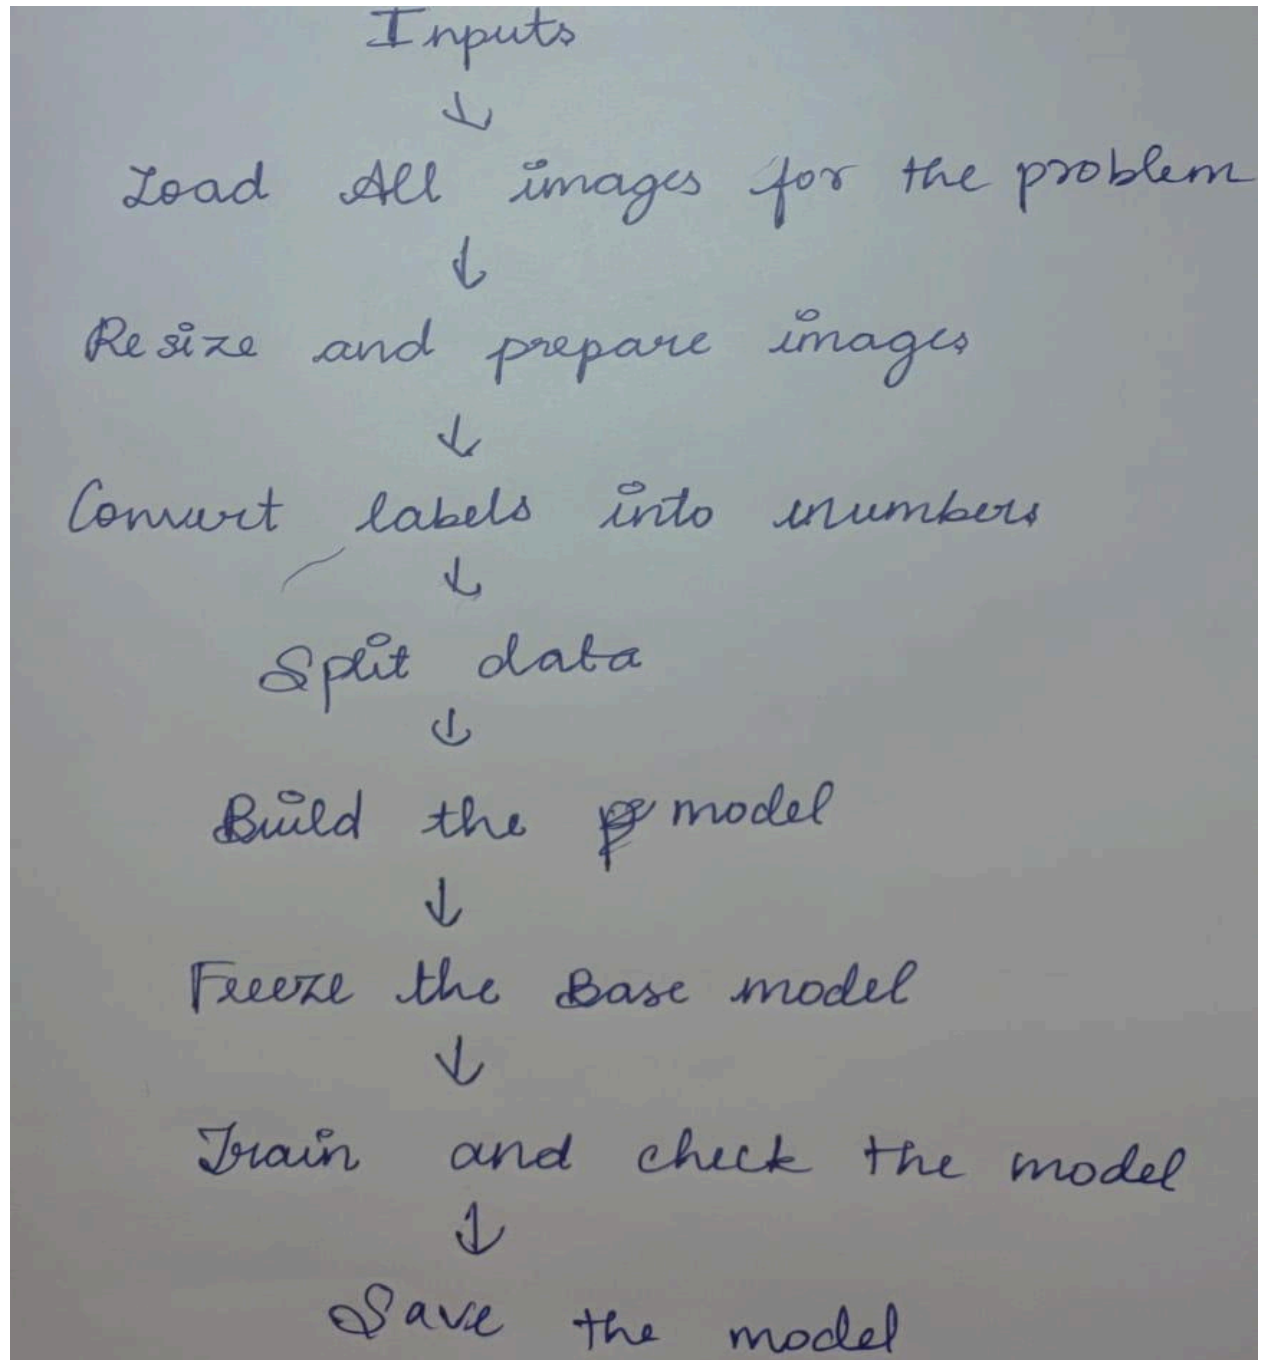 Inputs
↓
Load All images for the problem
↓
Resize and prepare images
↓
Convert labels into numbers
↓
Split data
↓
Build the model
↓
Freeze the Base model
↓
Train and check the model
↓
Save the model